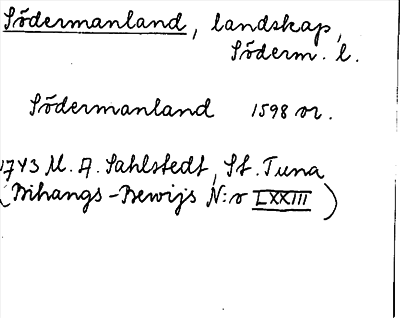 Södermanland, landskap,
Söderm. l.
Södermanland 1598 or.
1743 M. A. Sahlstedt, St. Tuna
(Bihangs-Bewijs N:o LXXIII)